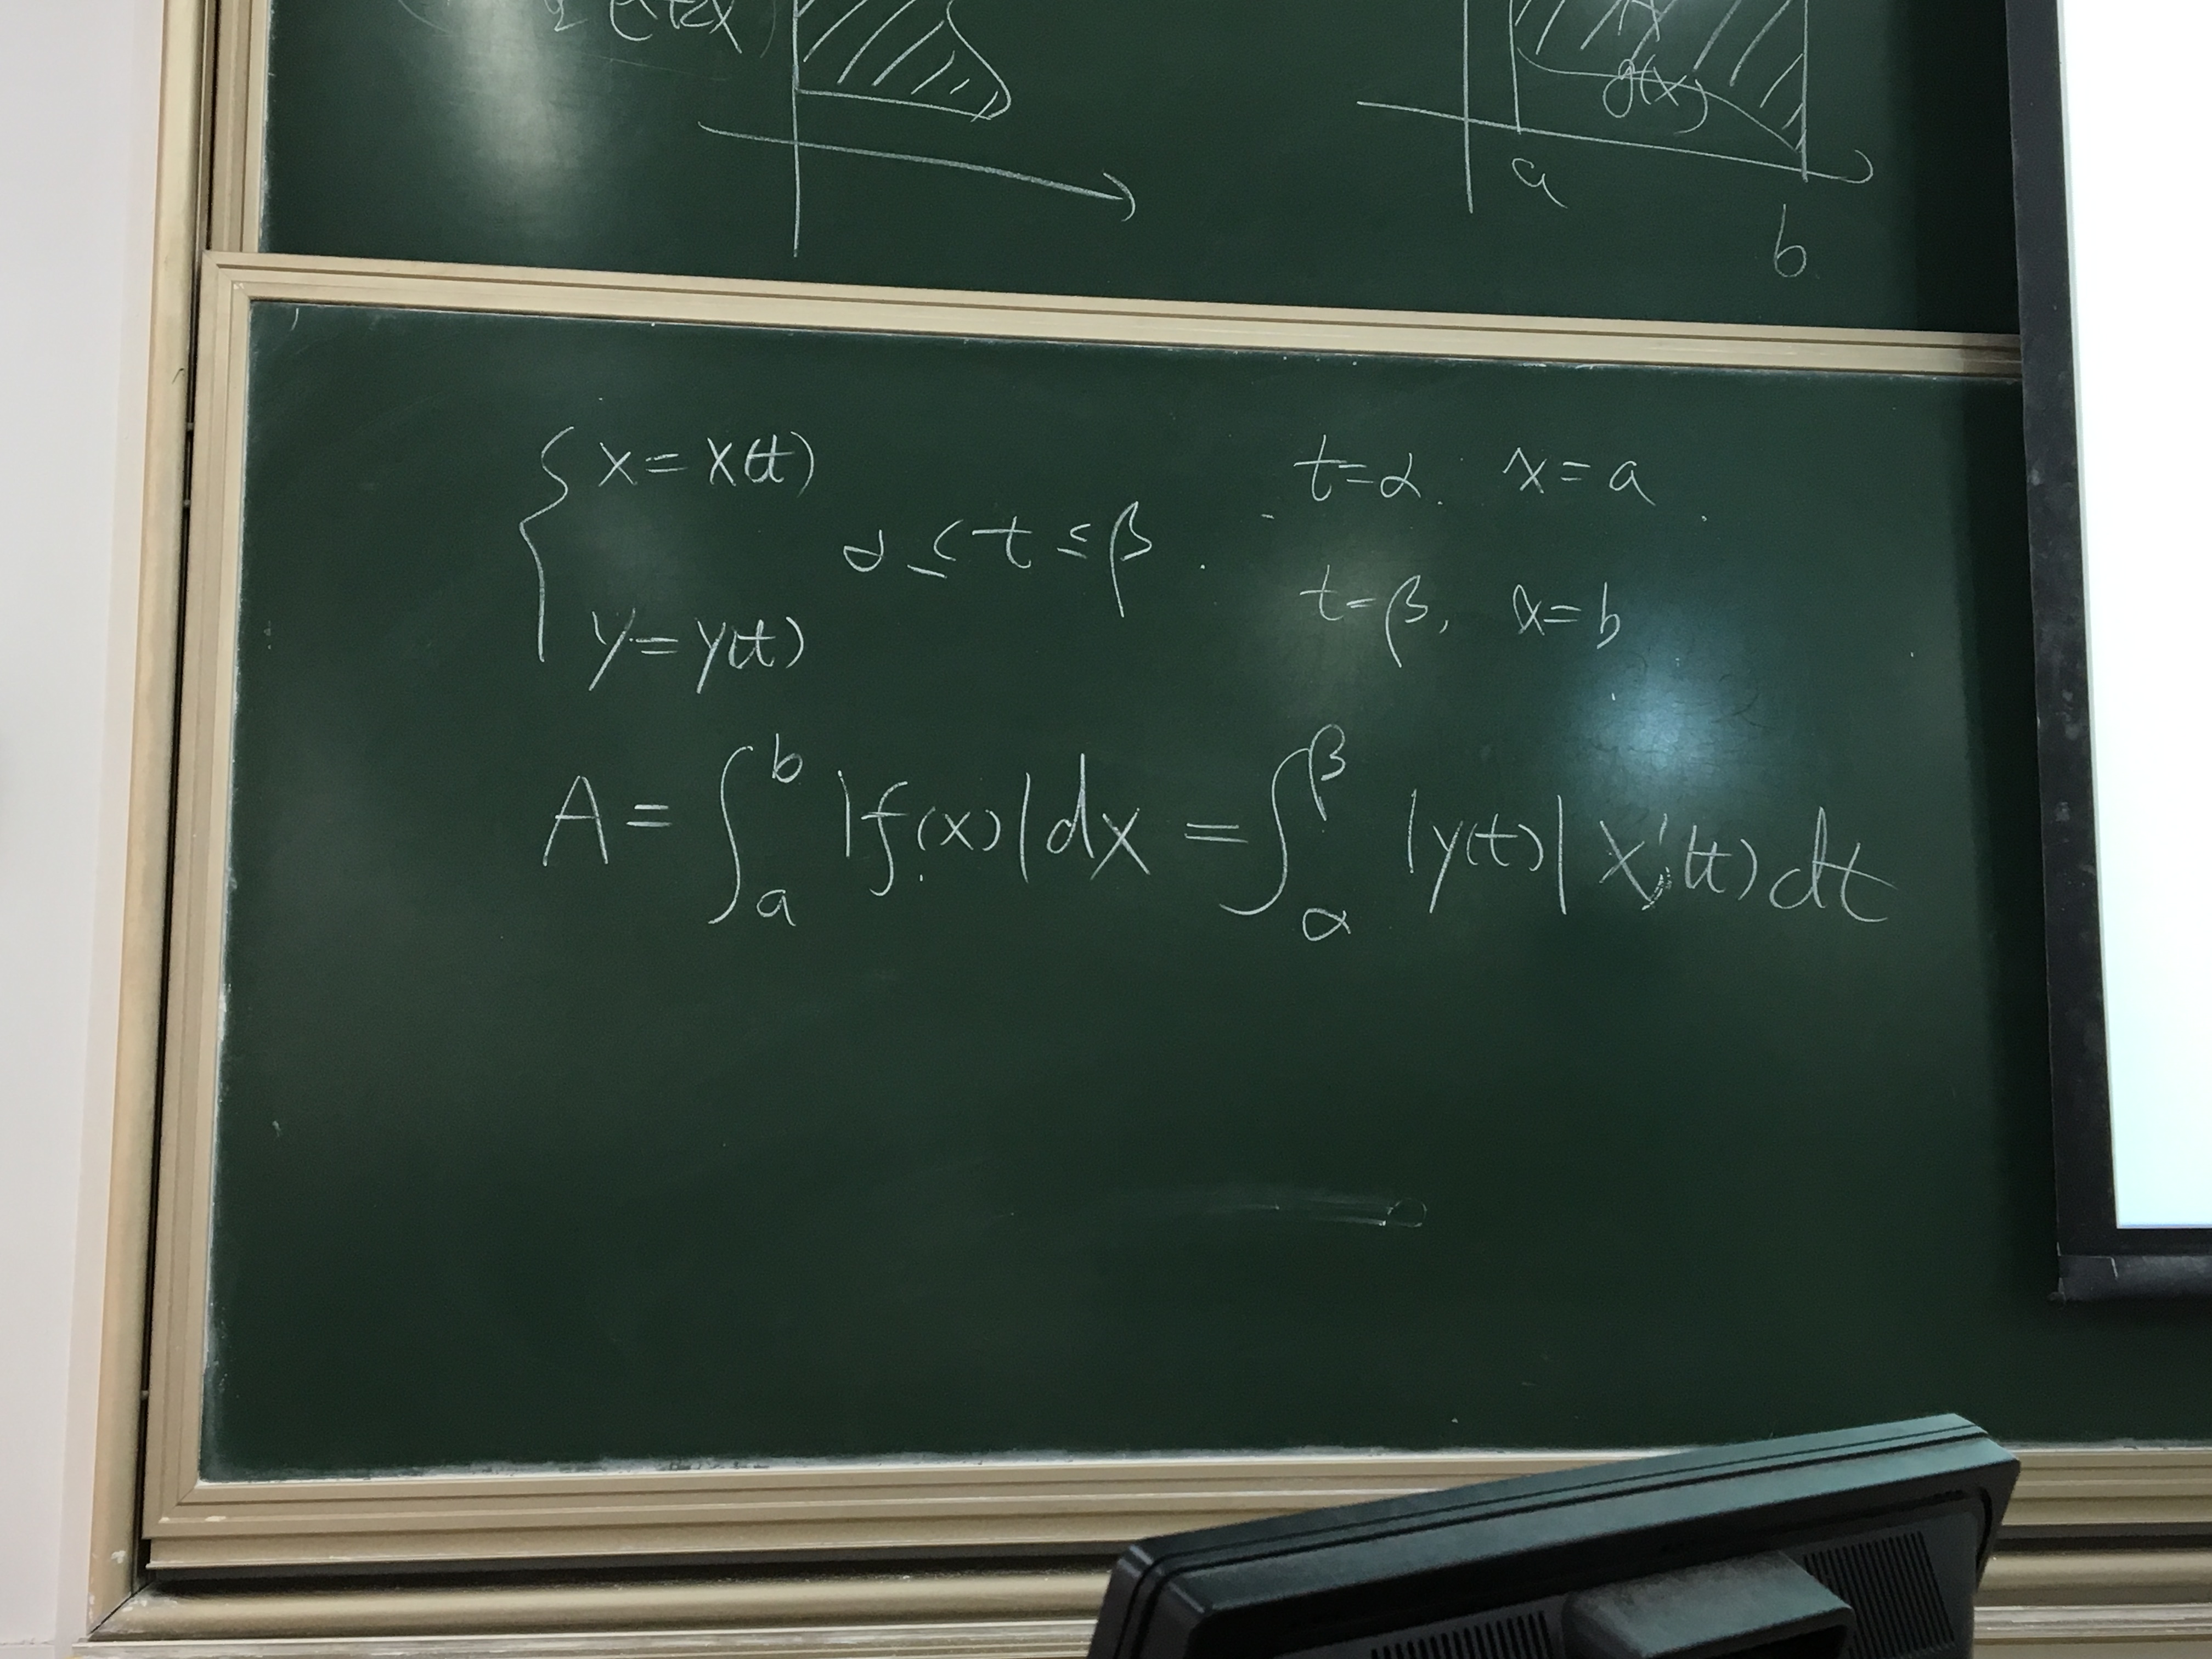 g(x)
a
b
{ x = x(t)
α ≤ t ≤ β.
y = y(t)
t=α. x=a
t=β, x=b
A = ∫_a^b |f(x)| dx = ∫_α^β |y(t)| x'(t) dt